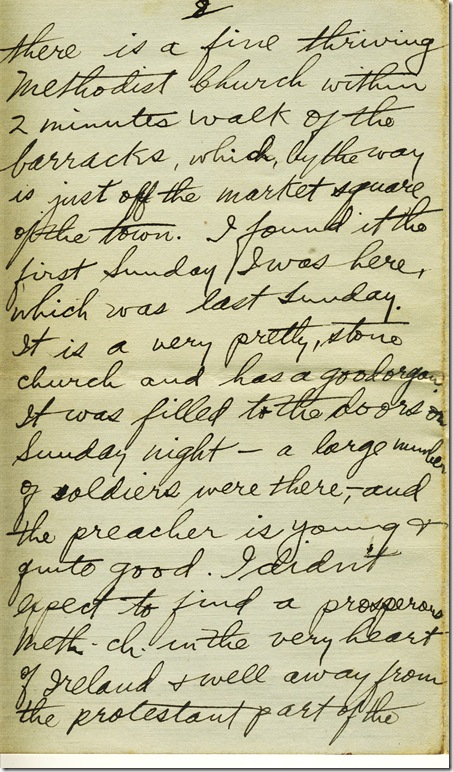 8
there is a fine thriving
Methodist Church within
2 minutes walk of the
barracks, which, by the way
is just off the market square
of the town. I found it the
first Sunday I was here,
which was last Sunday.
It is a very pretty, stone
church and has a good organ.
It was filled to the doors on
Sunday night – a large number
of soldiers were there, – and
the preacher is young &
quite good. I didn't
expect to find a prosperous
Meth. ch. in the very heart
of Ireland & well away from
the protestant part of the